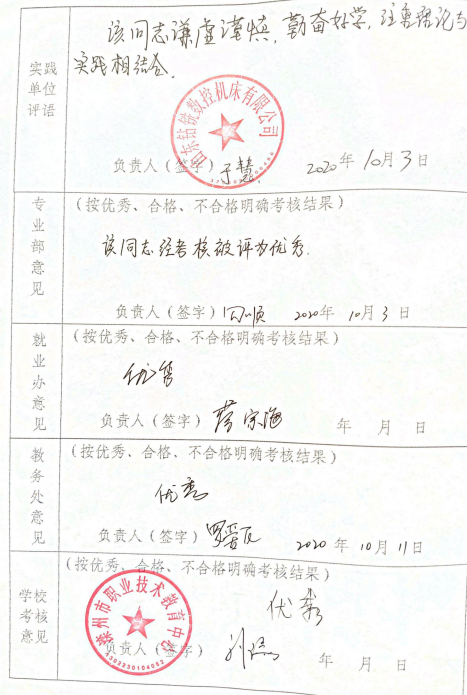 该同志谦虚谨慎,勤奋好学,注重理论与
实践相结合.
实践
单位
评语
山东钻镗数控机床有限公司
负责人(签字) 于慧 2020年10月3日
专业部意见
(按优秀、合格、不合格明确考核结果)
该同志经考核被评为优秀.
负责人(签字) 2020年10月3日
就业办意见
(按优秀、合格、不合格明确考核结果)
优秀
负责人(签字) 宗海 年 月 日
教务处意见
(按优秀、合格、不合格明确考核结果)
优秀
负责人(签字) 2020年10月11日
学校
考核
意见
(按优秀、合格、不合格明确考核结果)
优秀
滦州市职业技术教育中心
1302230104062
负责人(签字) 年 月 日